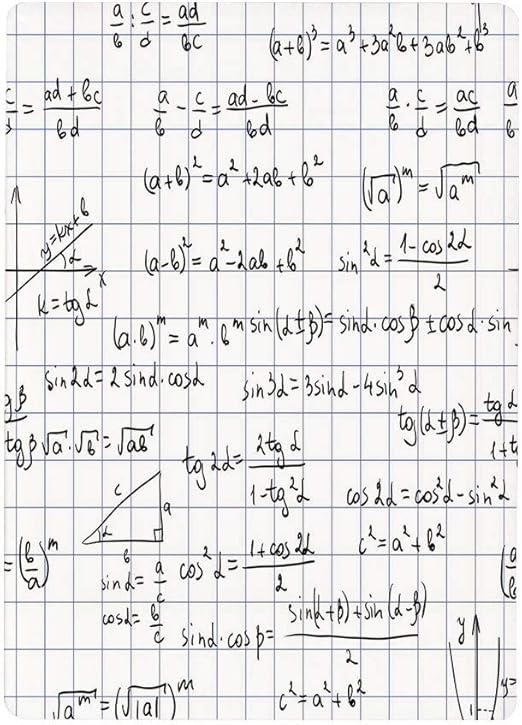 a/b : c/d = ad/bc
(a+b)³ = a³+3a²b+3ab²+b³
c/d = ad+bc/bd
a/b - c/d = ad-bc/bd
a/b · c/d = ac/bd
a/b
(a+b)² = a²+2ab+b²
(√a)^m = √a^m
y=kx+b
α
x
k=tgα
(a-b)² = a²-2ab+b²
sin²α = 1-cos2α/2
(a·b)^m = a^m · b^m
sin(α±β)= sinα·cosβ ±cosα·sin
sin2α=2sinα·cosα
sin3α=3sinα-4sin³α
tg(α±β)= tgα/1+t
gβ/tgβ
√a·√b=√ab
tg2α= 2tgα/1-tg²α
cos2α=cos²α-sin²α
c
a
α
b
=(b/a)^m
cos²α= 1+cos2α/2
c²=a²+b²
(a/b
sinα= a/c
cosα= b/c
sinα·cosβ= sin(α+β)+sin(α-β)/2
y
√a^m=(√|a|)^m
c²=a²+b²
1
y=